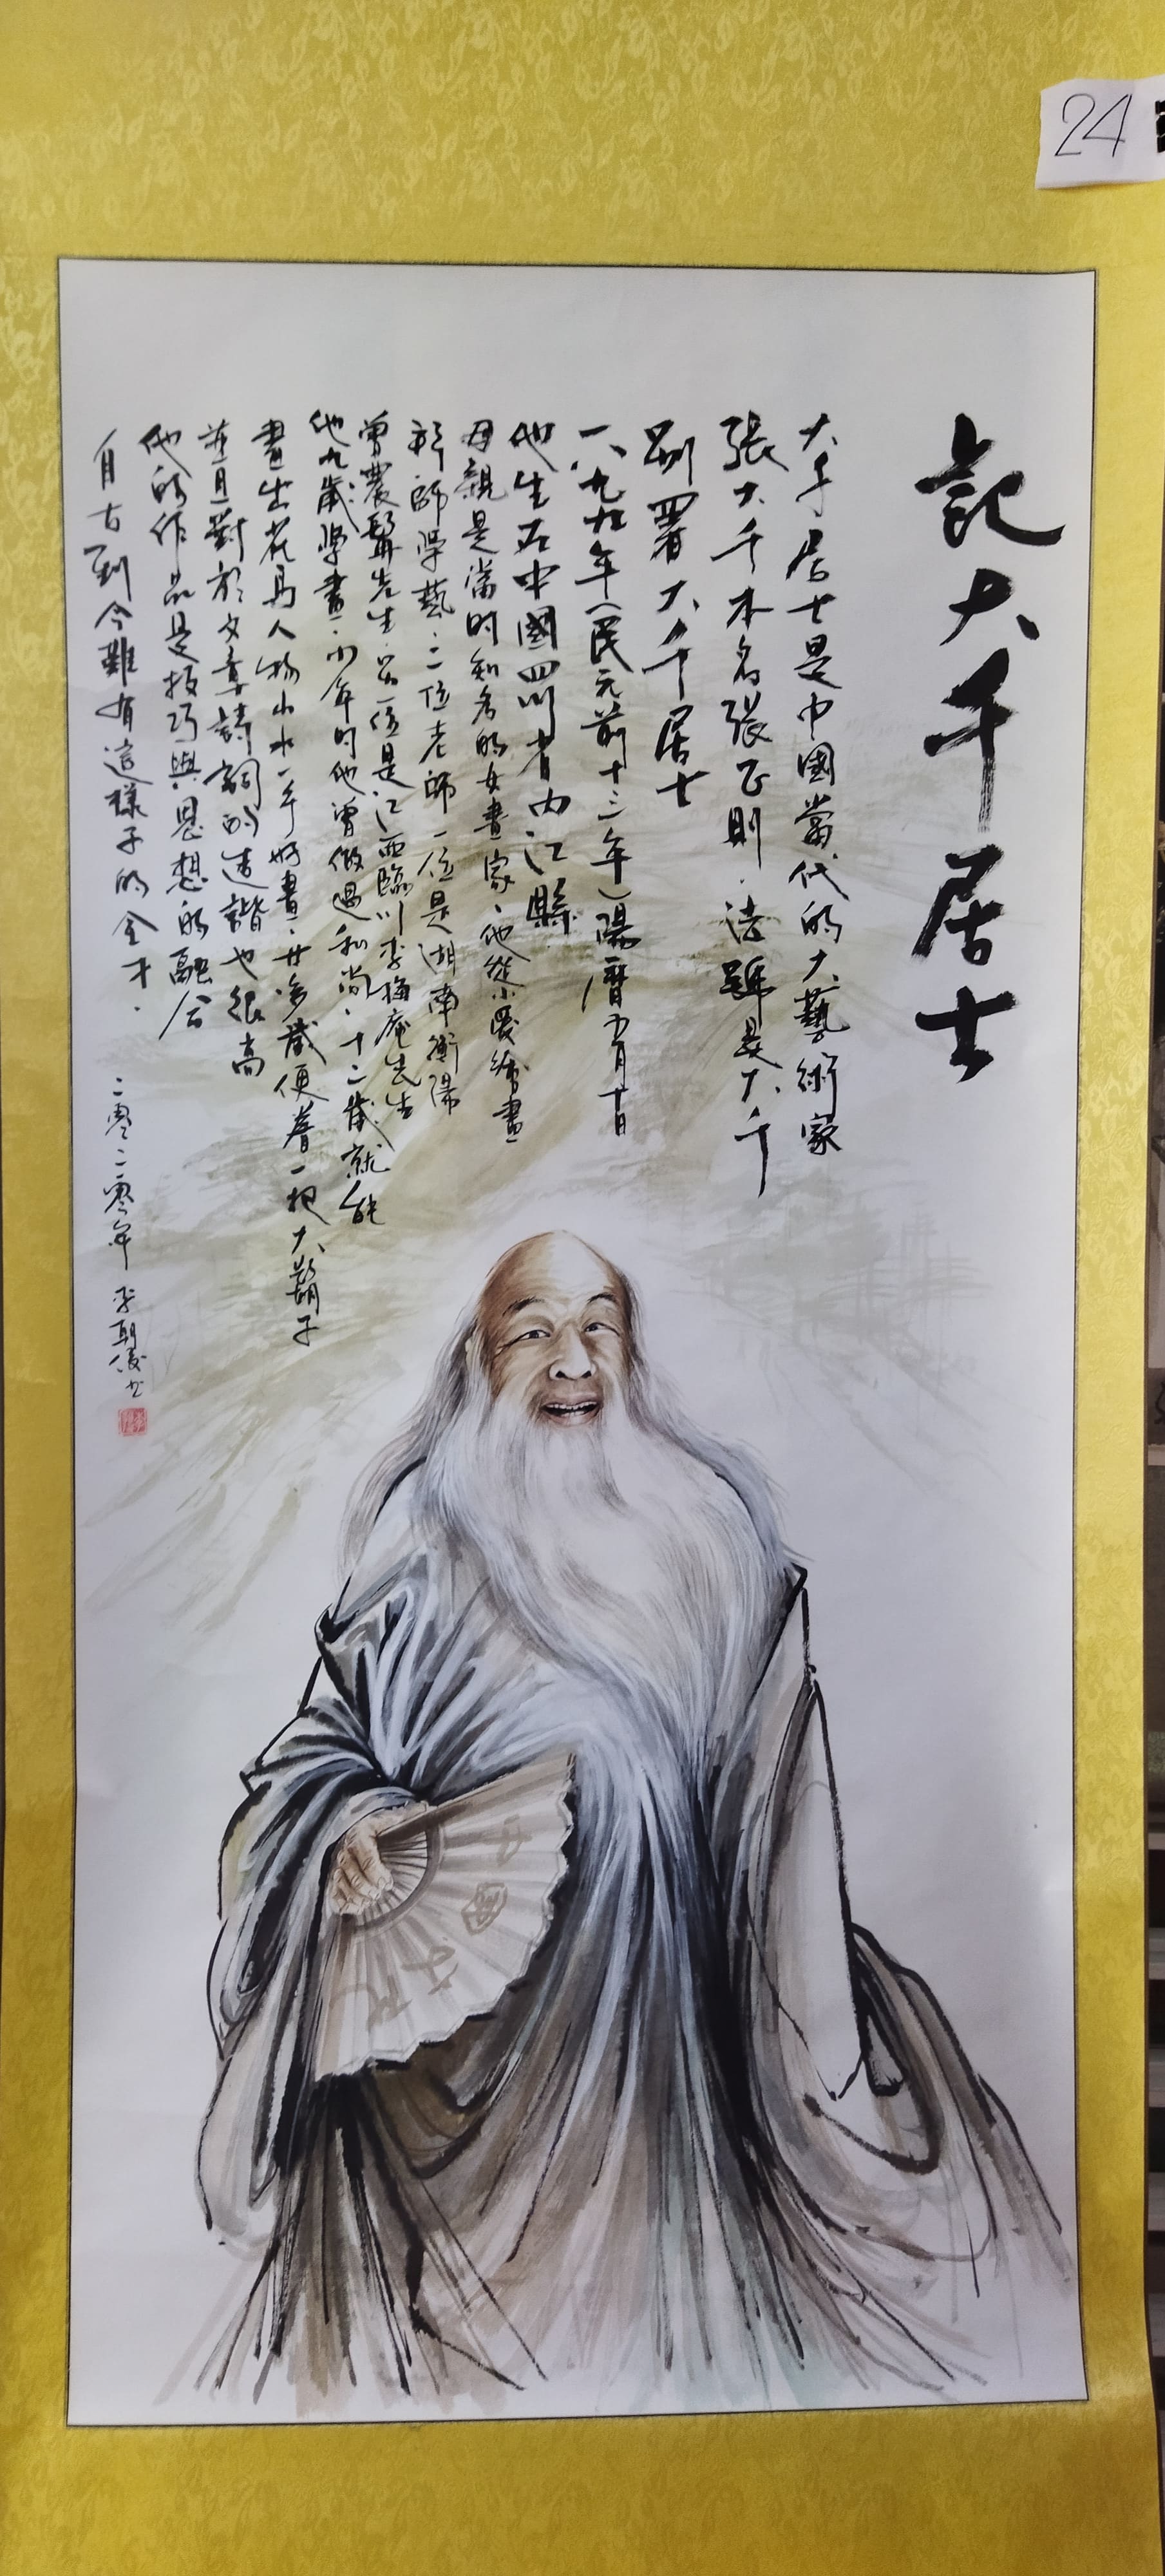 24
記大千居士
大千居士是中國當代的大藝術家
張大千本名張正則.法號是大千
別署大千居士
一八九九年(民元前十三年)陽曆五月十日
他生在中國四川省內江縣
母親是當時知名的女畫家、他從小愛繪畫
拜師學藝.二位老師一位是湖南衡陽
曾農髯先生.另一位是江西臨川李梅庵先生
他九歲學畫.少年时他曾做過和尚.十二歲就能
畫出花鳥人物山水一手好畫.廿多歲便養一把大鬍子
並且對於文章詩詞的造詣也很高
他的作品是技巧與思想的融合
自古到今難有這樣子的全才.
二零二零年 李朝儀书
中國